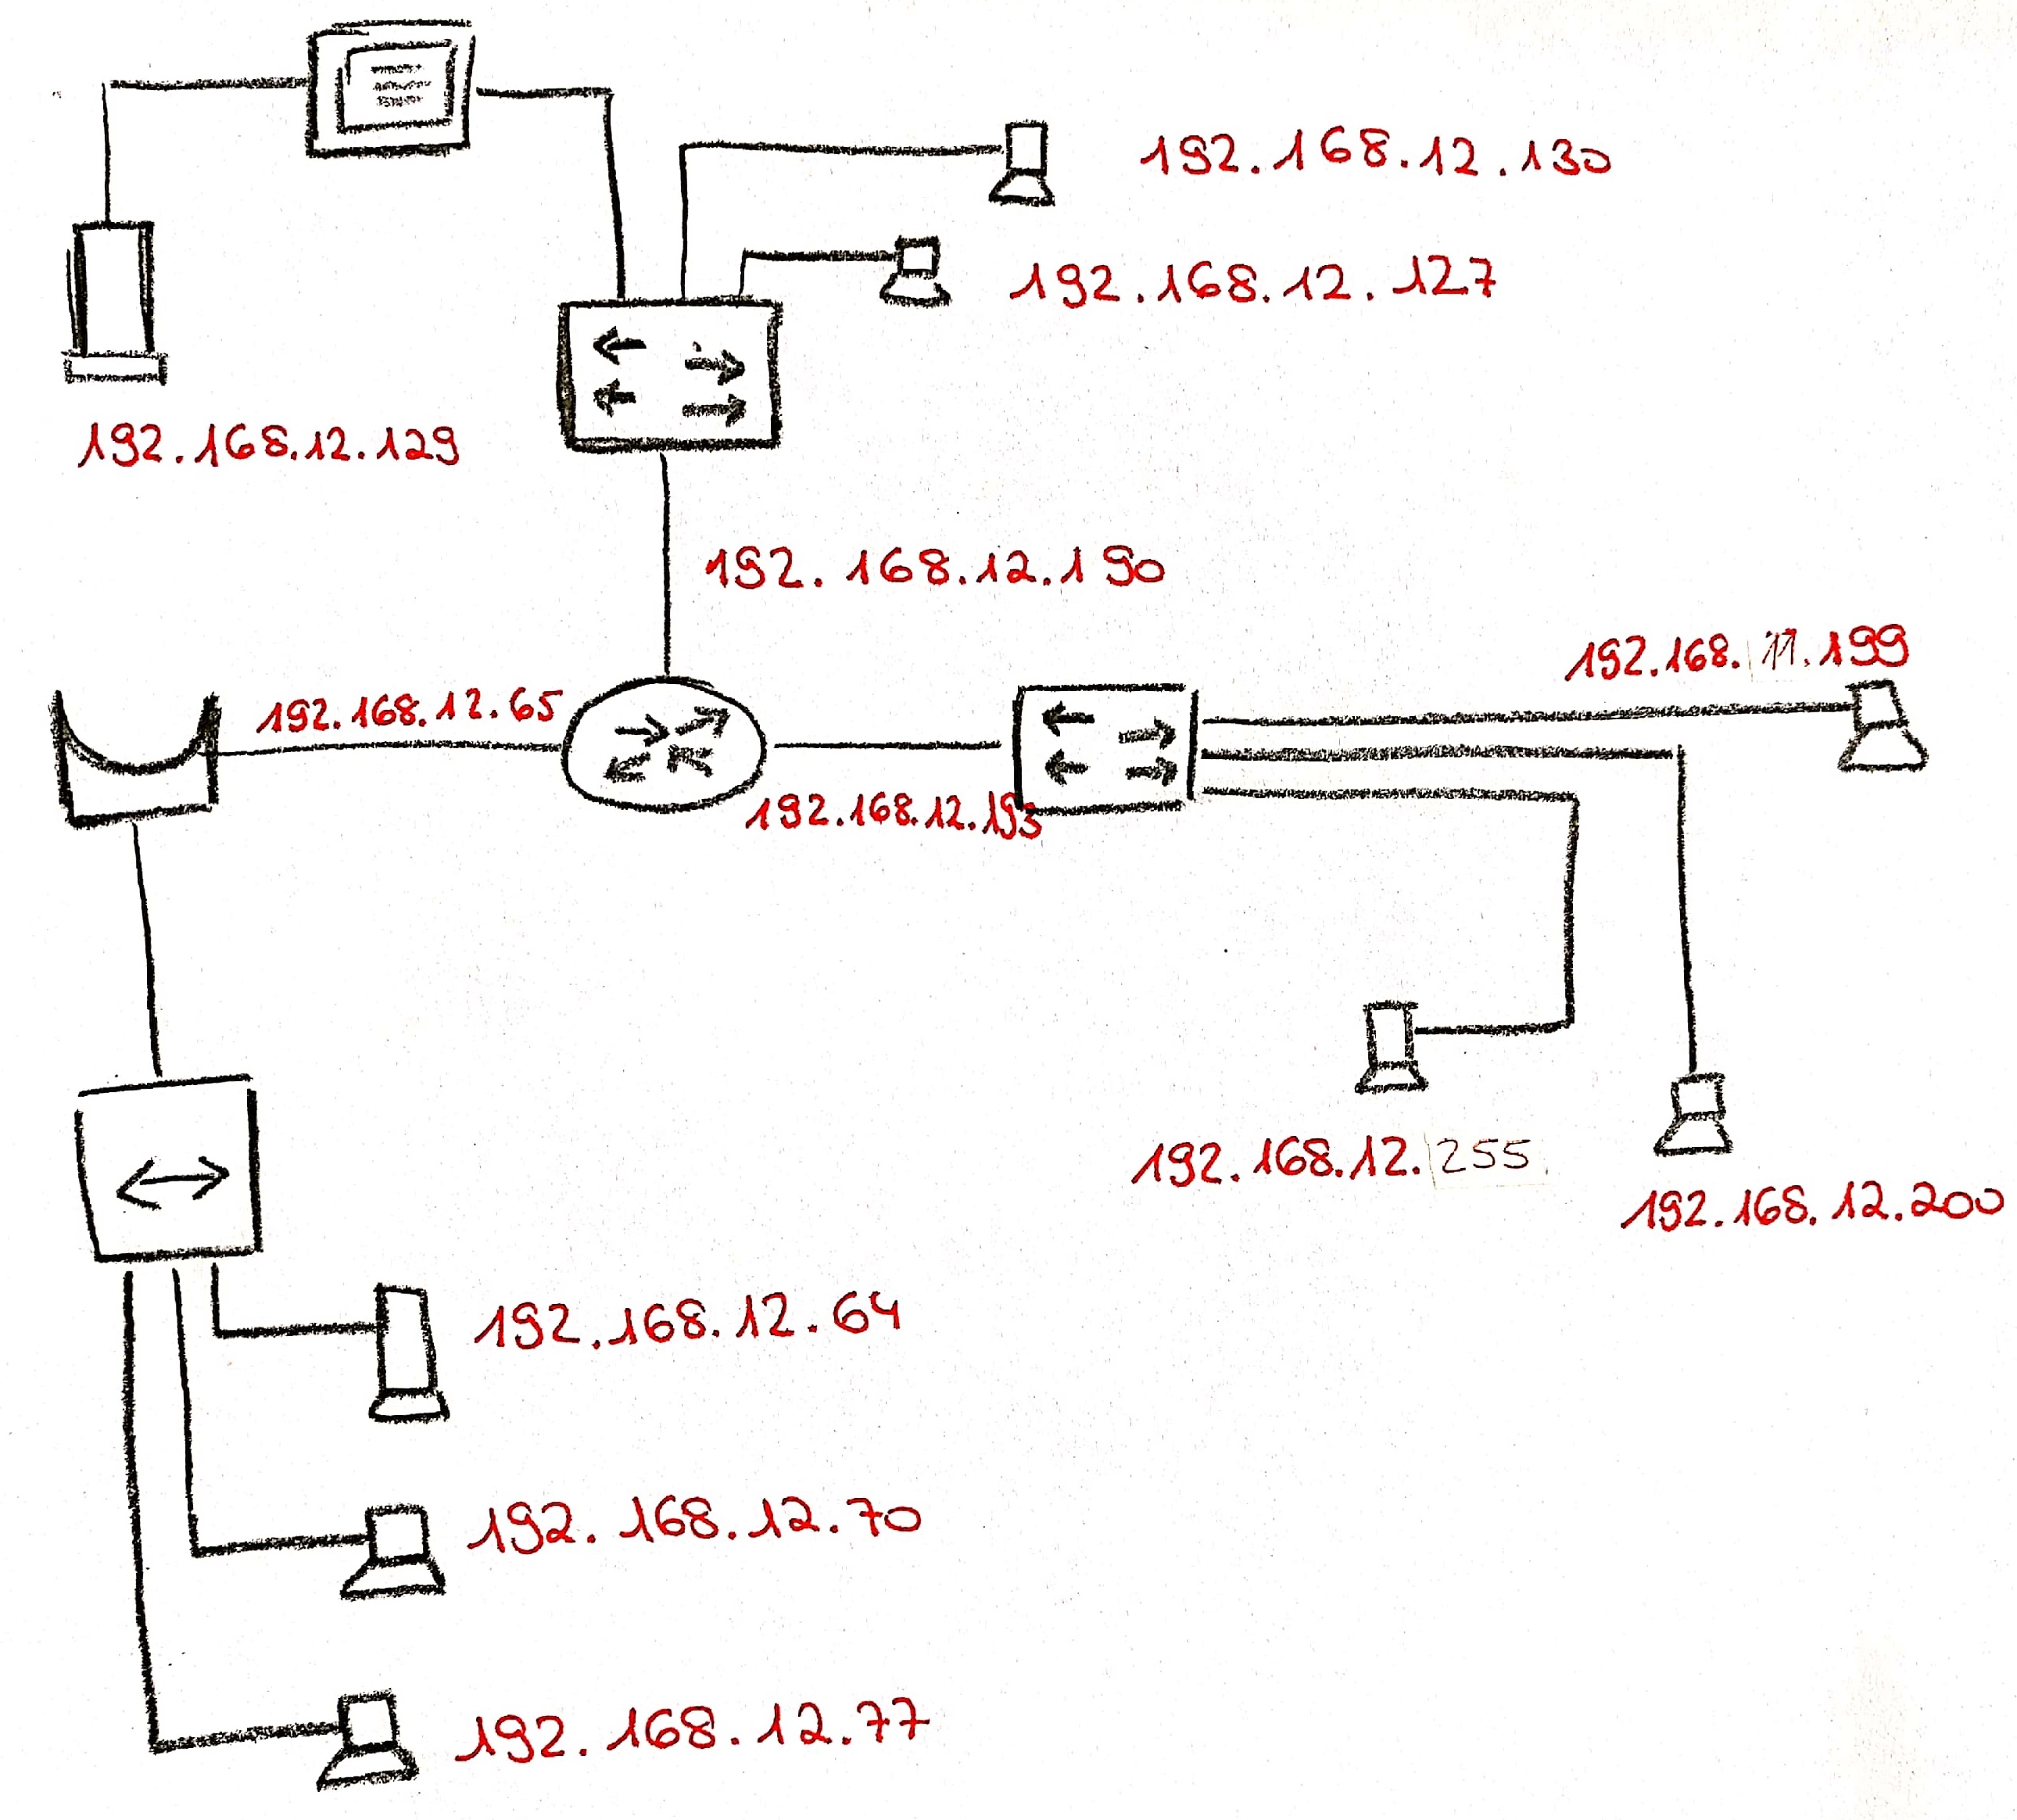 192.168.12.130
192.168.12.127
192.168.12.129
192.168.12.190
192.168.11.199
192.168.12.65
192.168.12.193
192.168.12.255
192.168.12.200
192.168.12.64
192.168.12.70
192.168.12.77